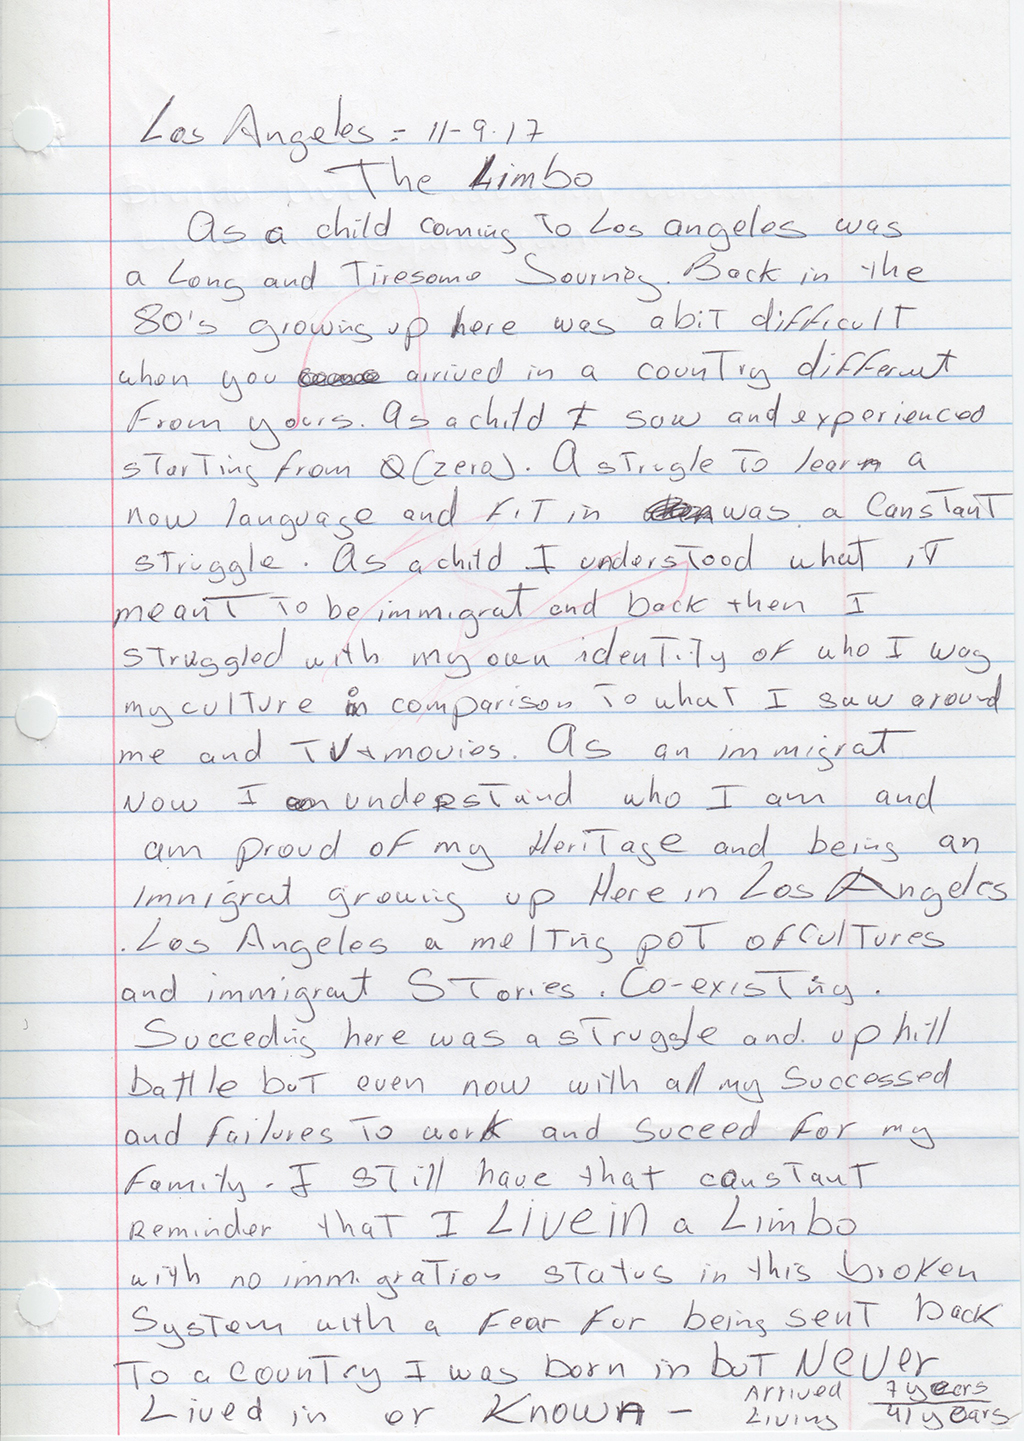 Los Angeles = 11-9-17
The Limbo
As a child coming to Los angeles was
a Long and Tiresome Journey. Back in the
80's growing up here was abit difficult
when you arrived in a country different
From yours. As a child I saw and experienced
starting from 0 (zero). A strugle to learn a
new language and Fit in was a Constant
struggle. As a child I understood what it
meant to be immigrat and back then I
struggled with my own identity of who I was
my culture in comparison to what I saw around
me and TV + movies. As an immigrat
Now I understand who I am and
am proud of my Heritage and being an
Immigrat growing up Here in Los Angeles
. Los Angeles a melting pot of cultures
and immigrant Stories. Co-existing.
Succeding here was a struggle and up hill
battle but even now with all my Successed
and failures to work and suceed for my
Family. I still have that constant
Reminder that I Live in a Limbo
with no immigration status in this broken
System with a Fear For being sent back
To a country I was born in but Never
Lived in or Known -
Arrived 7 years
Living 41 years